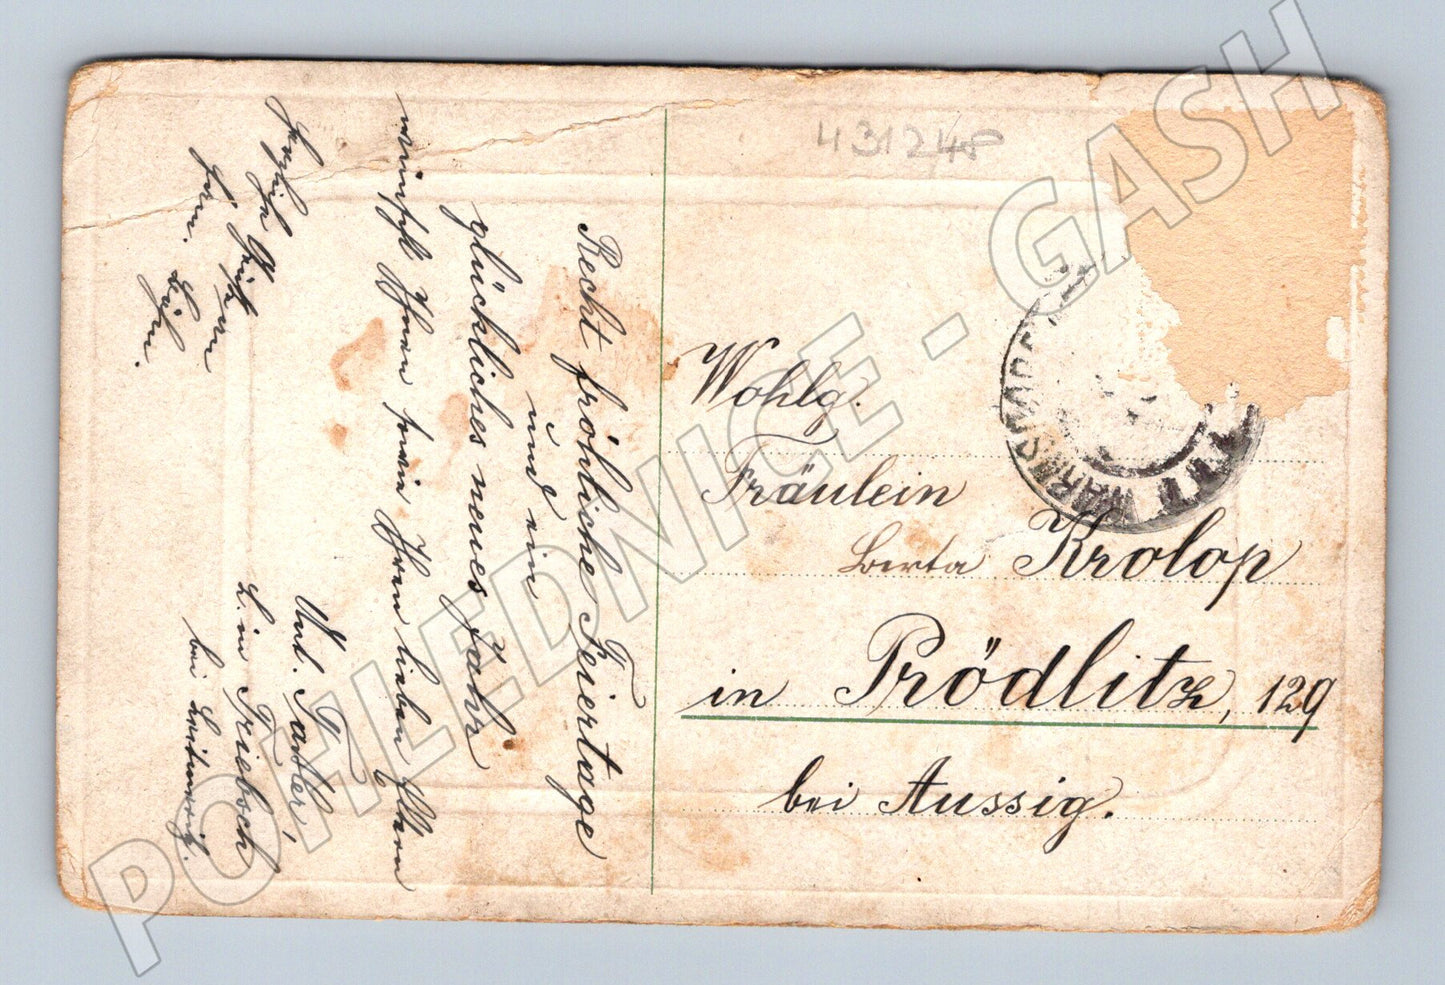 431248
Recht fröhliche Feiertage
und ein
glückliches neues Jahr
wünscht Ihnen sowie Ihren lieben Eltern
Ant. Tadler,
L. in Triebsch
bei Leitmeritz.
Wohlg.
Fräulein
Berta Krolop
in Prödlitz, 129
bei Aussig.
POHLEDNICE - GASH